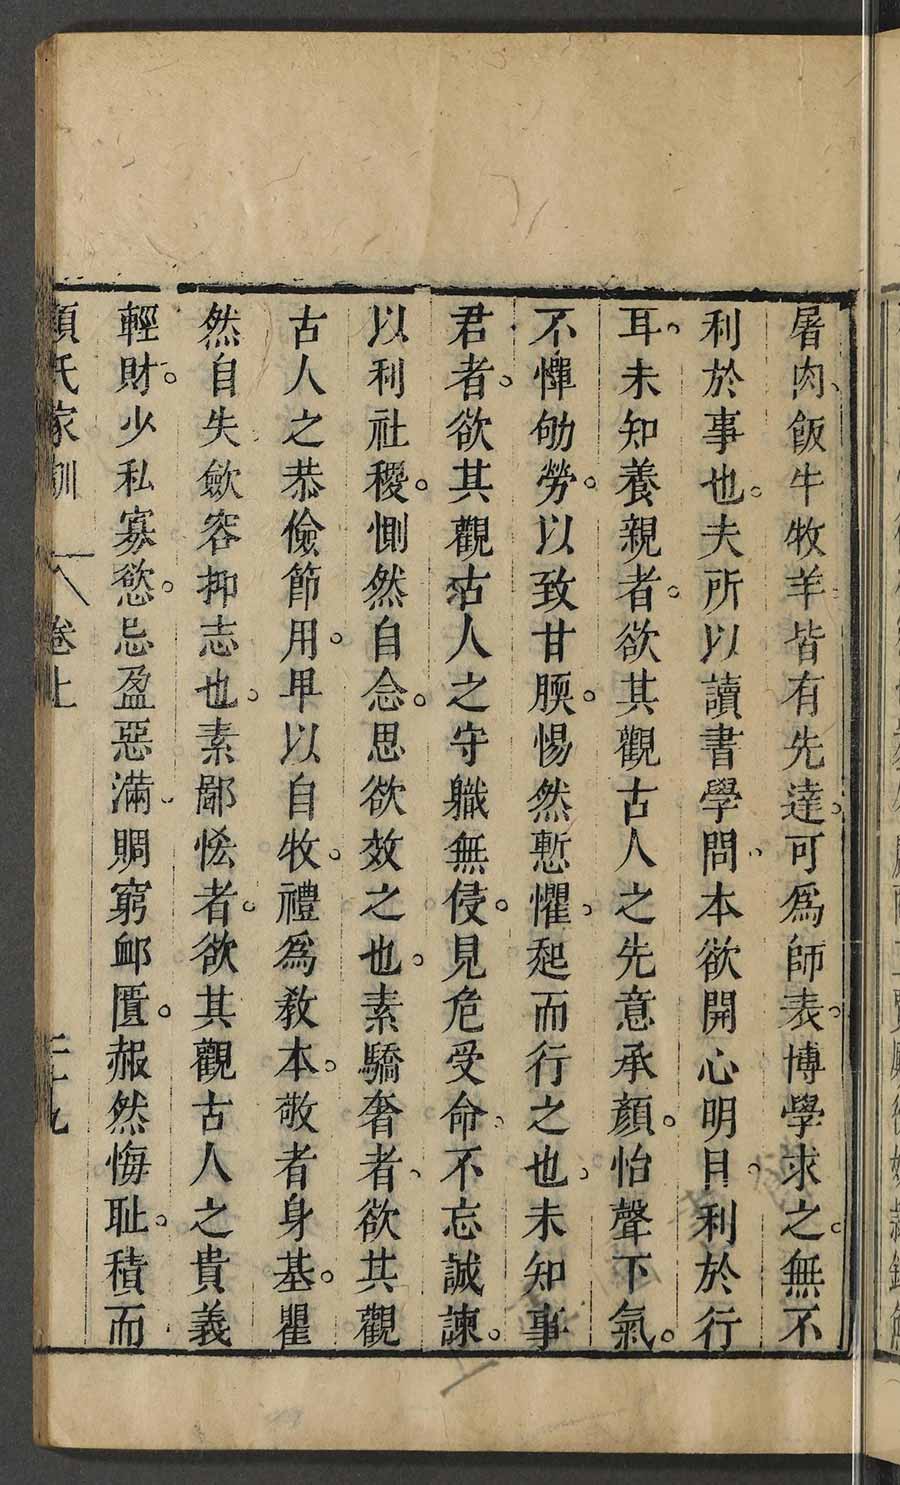 屠肉飯牛牧羊皆有先達。可爲師表。博學求之。無不
利於事也。夫所以讀書學問、本欲開心明目。利於行
耳。未知養親者。欲其觀古人之先意承顏。怡聲下氣。
不憚劬勞。以致甘腝。惕然慙懼。起而行之也、未知事
君者。欲其觀古人之守職無侵。見危受命、不忘誠諫。
以利社稷。惻然自念。思欲效之也。素驕奢者、欲其觀
古人之恭儉節用。卑以自牧。禮爲教本。敬者身基。瞿
然自失斂容抑志也。素鄙恡者。欲其觀古人之貴義
輕財。少私寡慾。忌盈惡滿、賙窮卹匱。赧然悔耻。積而
顏氏家訓 卷上 二十九